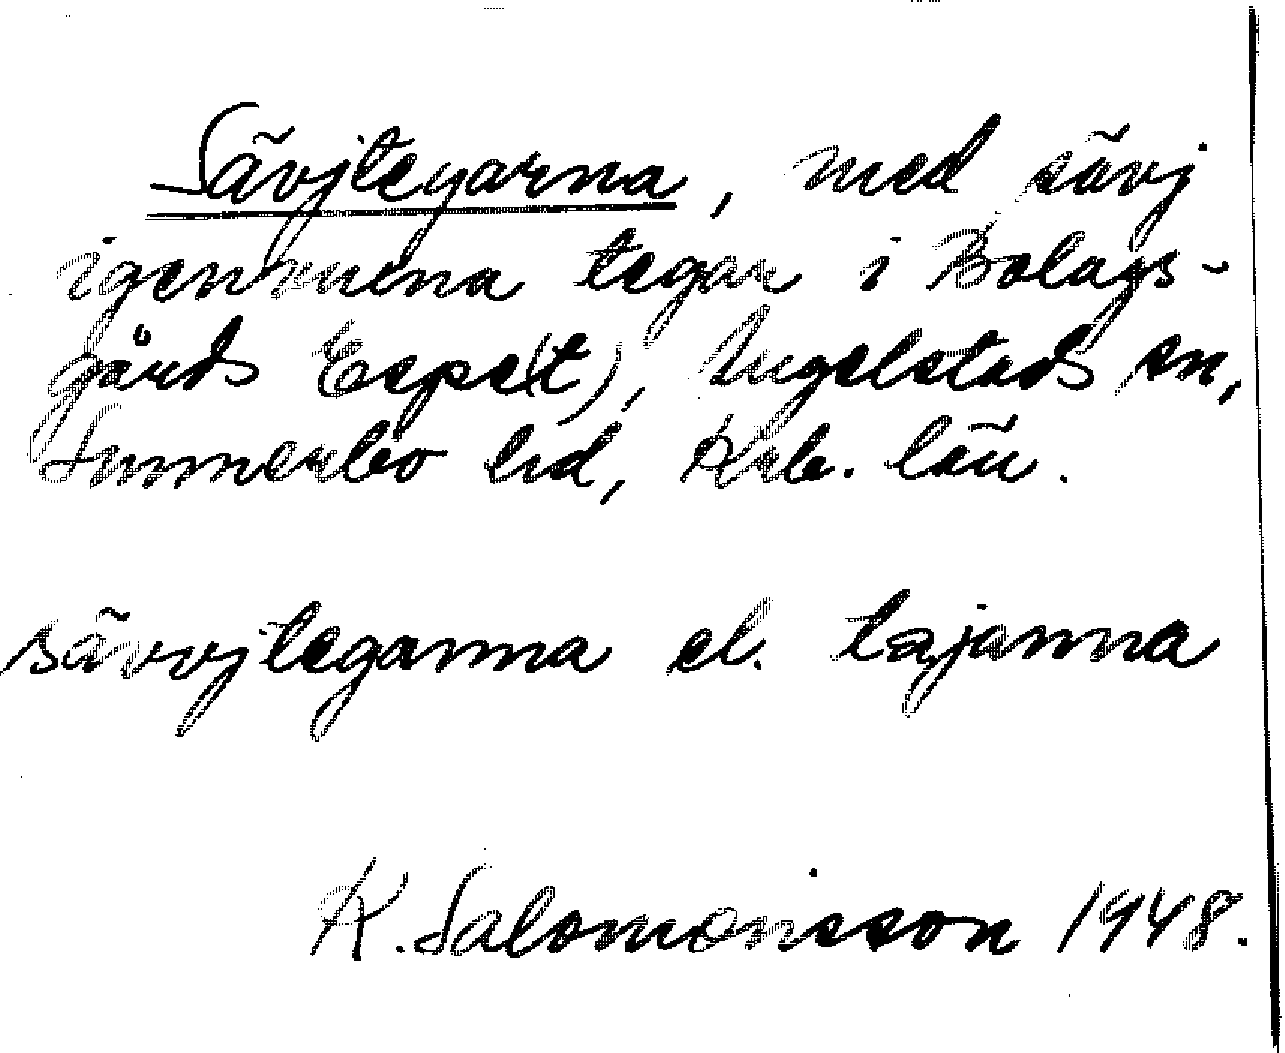 Sävjtegarna, med sävj
igenvuxna tegar i Bolags-
gårds Espe(t), Ingelstads sn,
Simmerbo hd, Krb. län.
sävvjteganna el. tajanna
K. Salomonsson 1948.